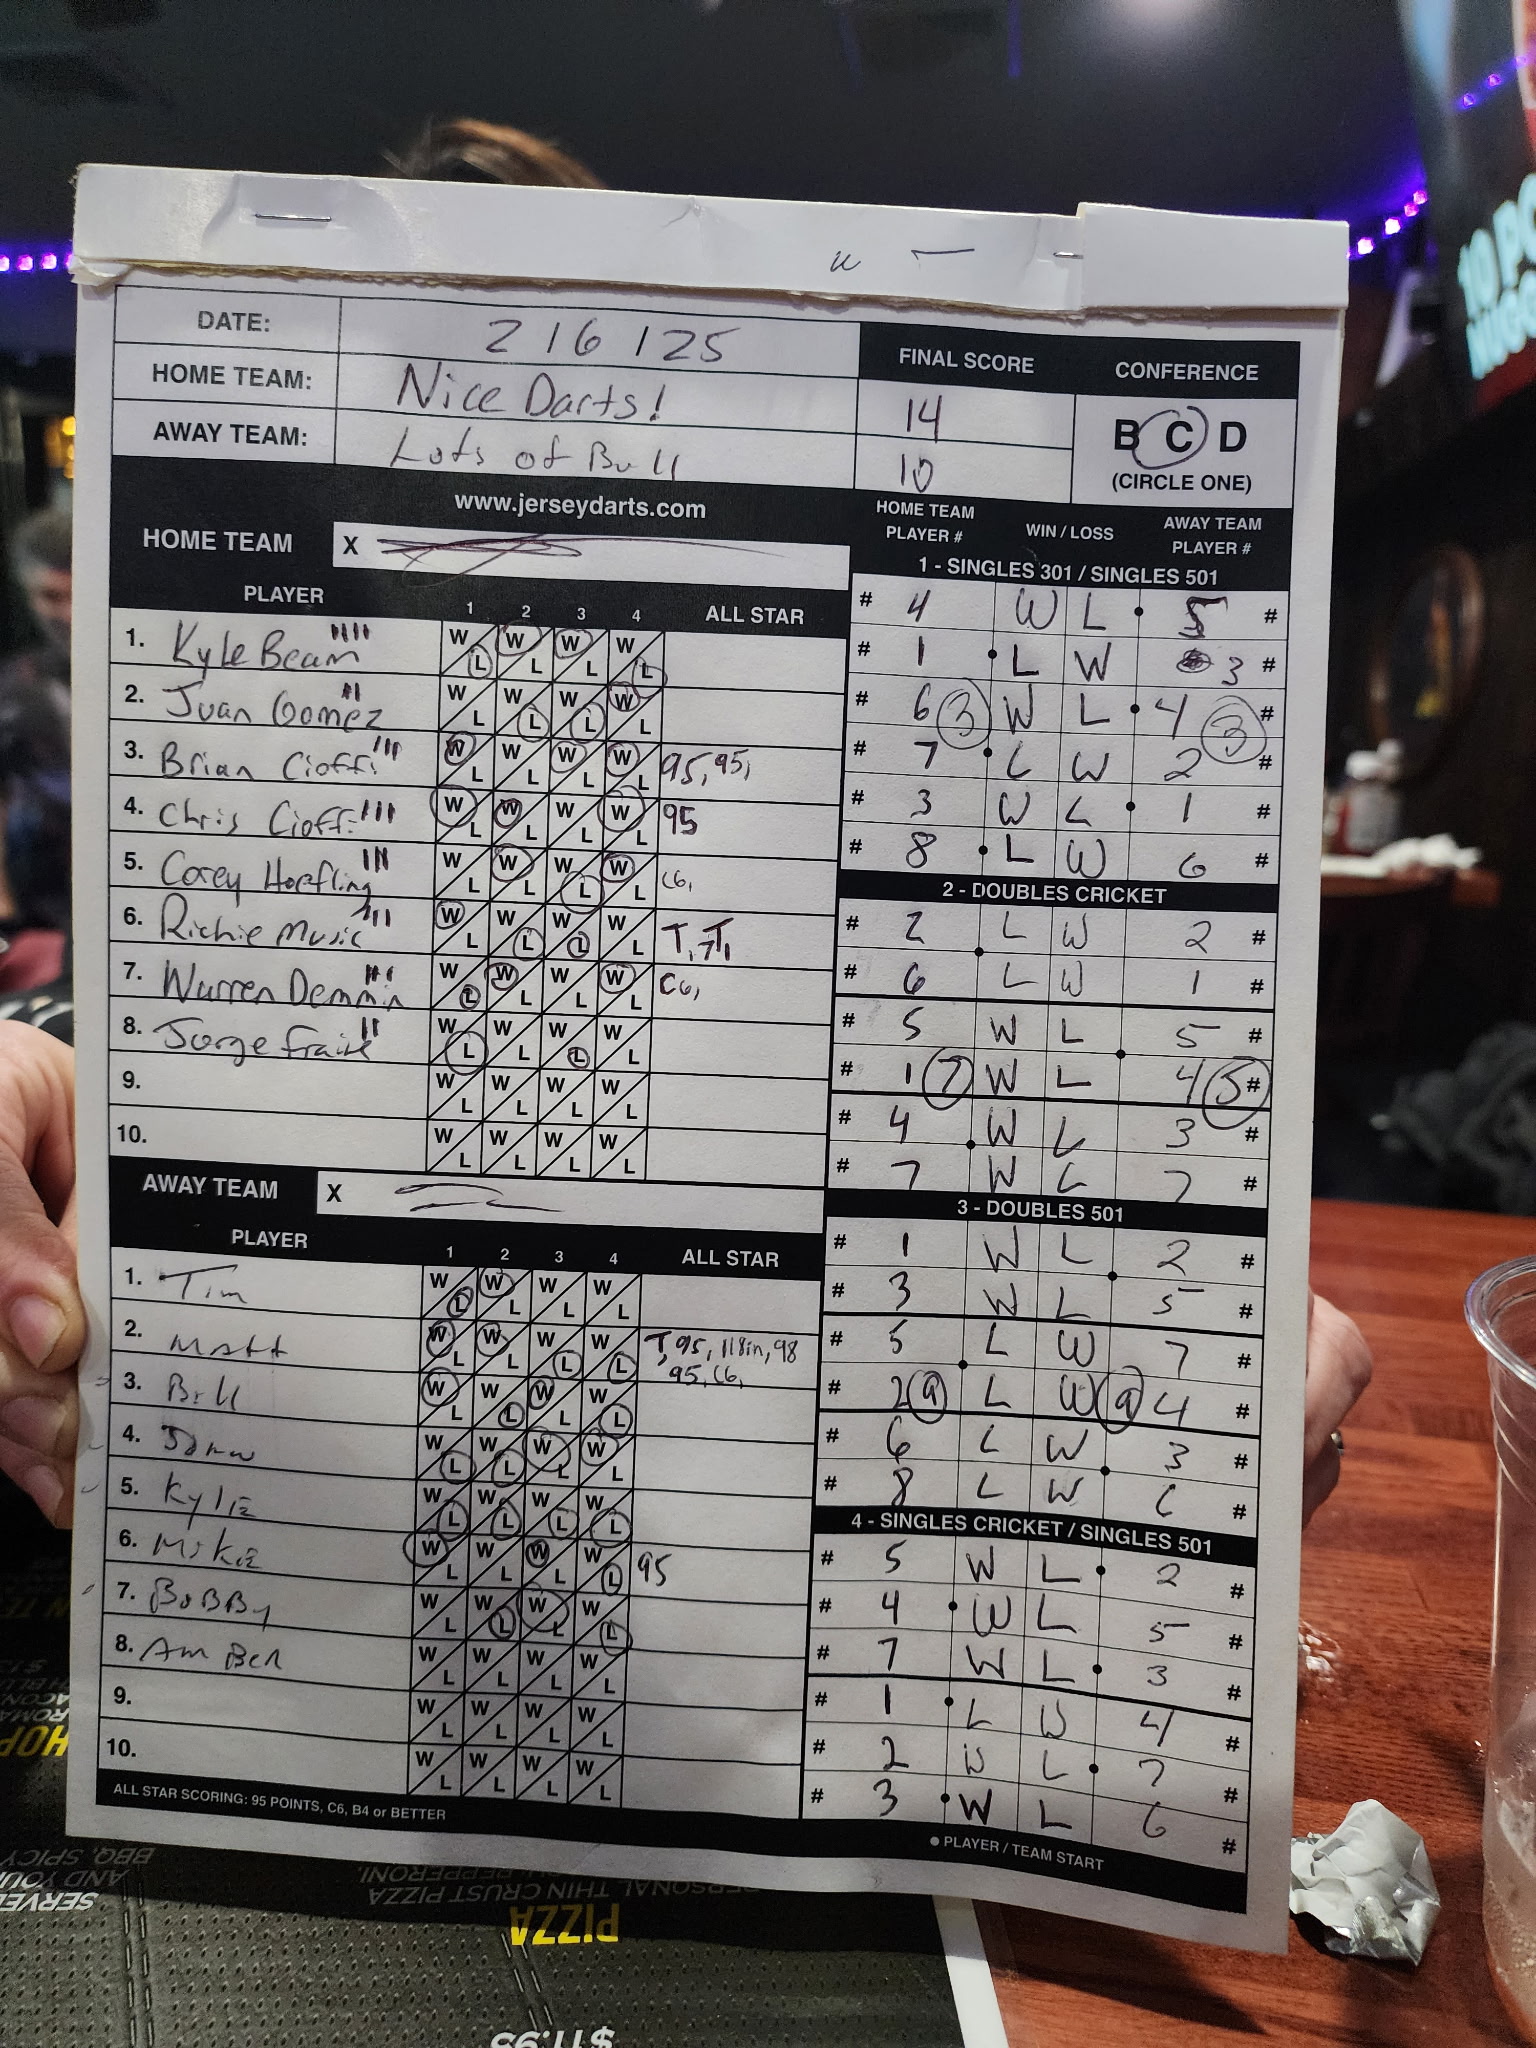 DATE: 2 16 125
HOME TEAM: Nice Darts!
AWAY TEAM: Lots of Bull
FINAL SCORE
14
10
CONFERENCE
B C D
(CIRCLE ONE)
www.jerseydarts.com
HOME TEAM X
PLAYER 1 2 3 4 ALL STAR
1. Kyle Beam W L W L W L W L
2. Juan Gomez W L W L W L W L
3. Brian Cioffi W L W L W L W L 95, 95,
4. Chris Cioffi W L W L W L W L 95
5. Corey Hoefling W L W L W L W L C6,
6. Richie Music W L W L W L W L T, T,
7. Warren Demmin W L W L W L W L C6,
8. Jorge W L W L W L W L
9. W L W L W L W L
10. W L W L W L W L
AWAY TEAM X
PLAYER 1 2 3 4 ALL STAR
1. Tim W L W L W L W L
2. Matt W L W L W L W L T, 95, 118in, 98
95, C6,
3. Bill W L W L W L W L
4. W L W L W L W L
5. Kylie W L W L W L W L
6. Mikie W L W L W L W L 95
7. BoBBy W L W L W L W L
8. AmBer W L W L W L W L
9. W L W L W L W L
10. W L W L W L W L
ALL STAR SCORING: 95 POINTS, C6, B4 or BETTER
HOME TEAM PLAYER # WIN / LOSS AWAY TEAM PLAYER #
1 - SINGLES 301 / SINGLES 501
# 4 W L 5 #
# 1 L W 3 #
# 6 3 W L 4 3 #
# 7 L W 2 #
# 3 W L 1 #
# 8 L W 6 #
2 - DOUBLES CRICKET
# 2 L W 2 #
# 6 L W 1 #
# 5 W L 5 #
# 1 7 W L 4 5 #
# 4 W L 3 #
# 7 W L 7 #
3 - DOUBLES 501
# 1 W L 2 #
# 3 W L 5 #
# 5 L W 7 #
# 2 9 L W 9 4 #
# 6 L W 3 #
# 8 L W 6 #
4 - SINGLES CRICKET / SINGLES 501
# 5 W L 2 #
# 4 W L 5 #
# 7 W L 3 #
# 1 L W 4 #
# 2 W L 7 #
# 3 W L 6 #
● PLAYER / TEAM START
10 PC
NUGG
SERVED
AND YOUR
BBQ, SPICY
PIZZA
PERSONAL THIN CRUST PIZZA
PEPPERONI,
$11.95